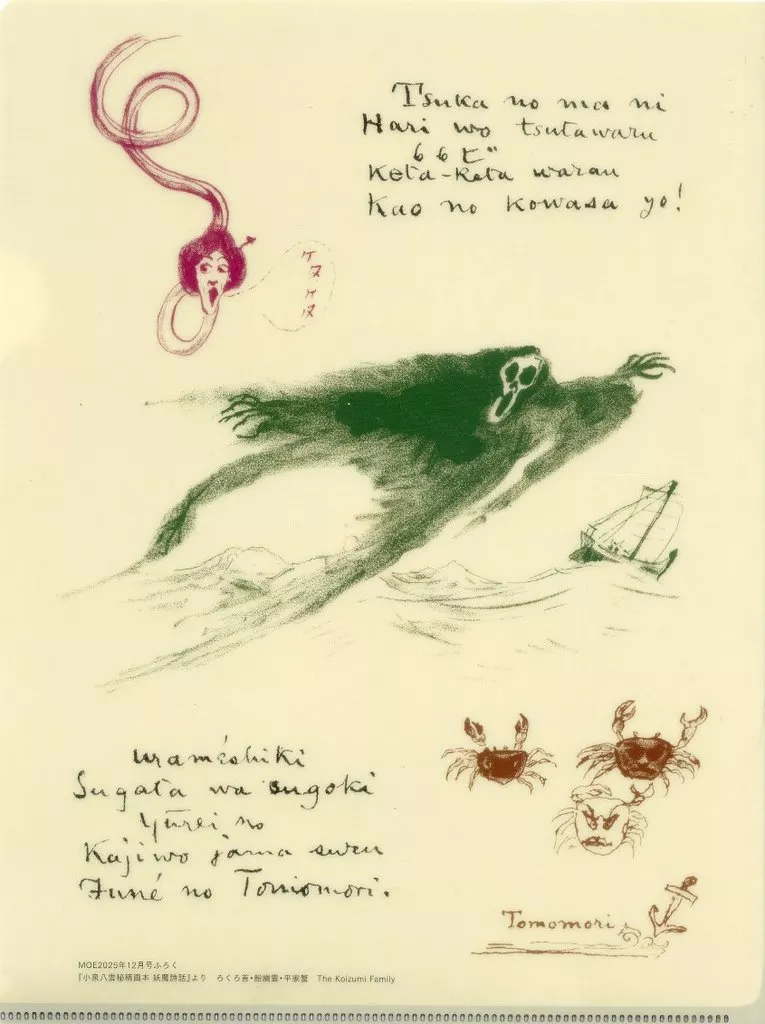 Tsuka no ma ni
Hari wo tsutawaru
ろくび
Keta-Keta warau
Kao no kowasa yo!
ケタ
ケタ
uraméshiki
Sugata wa sugoki
Yūrei no
Kaji wo jama suru
Funé no Tomomori.
Tomomori
MOE2025年12月号ふろく
『小泉八雲秘稿画本 妖魔詩話』より ろくろ首・船幽霊・平家蟹 The Koizumi Family